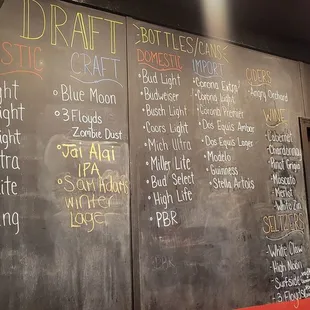 DRAFT
STIC
CRAFT
ght
ght
ight
Ultra
ite
ing
Blue Moon
3 Floyds
Zombie Dust
Jai Alai
IPA
Sam Adams
winter
Lager
BOTTLES/CANS
DOMESTIC
Bud Light
Budweiser
Busch Light
Coors Light
Mich Ultra
Miller Lite
Bud Select
High Life
PBR
IMPORT
Corona Extra
Corona Light
Corona Premier
Dos Equis Ambar
Dos Equis Lager
Modelo
Guinness
Stella Artois
CIDERS
Angry Orchard
WINE
Cabernet
Chardonnay
Pinot Grigio
Moscato
Merlot
White Zin
SELTZERS
White Claw
High Noon
Surfside
3 Floyds